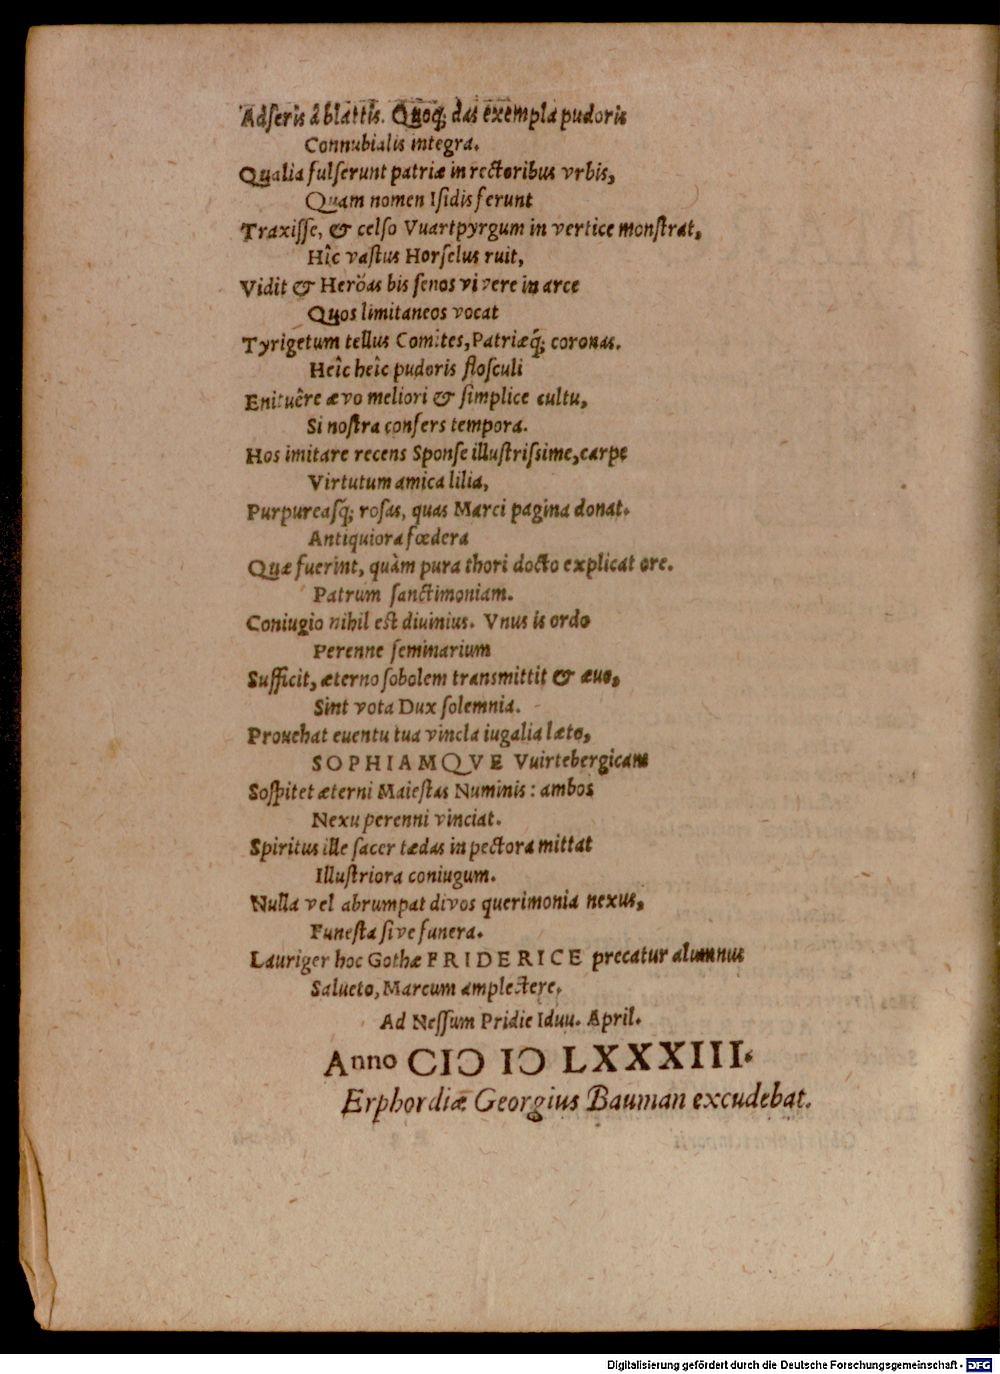 Adſeris â blattis. Quoq; das exempla pudoris
Connubialis integra.
Qualia fulſerunt patriæ in rectoribus vrbis,
Quam nomen Iſidis ferunt
Traxiſſe, & celſo Vuartpyrgum in vertice monſtrat,
Hîc vaſtus Horſelus ruit,
Vidit & Heröas bis ſenos vivere in arce
Quos limitaneos vocat
Tyrigetum tellus Comites, Patriæq́; coronas.
Heîc heîc pudoris floſculi
Enituêre ævo meliori & ſimplice cultu,
Si noſtra confers tempora.
Hos imitare recens Sponſe illuſtriſsime, carpe
Virtutum amica lilia,
Purpureaſq́; roſas, quas Marci pagina donat.
Antiquiora fœdera
Quæ fuerint, quàm pura thori docto explicat ore.
Patrum ſanctimoniam.
Coniugio nihil eſt diuinius. Vnus is ordo
Perenne ſeminarium
Sufficit, æterno ſobolem transmittit & æuo,
Sint vota Dux ſolemnia.
Prouehat euentu tua vincla iugalia læto,
SOPHIAMQVE Vuirtebergicam
Soſpitet æterni Maieſtas Numinis: ambos
Nexu perenni vinciat.
Spiritus ille ſacer tædas in pectora mittat
Illuſtriora coniugum.
Nulla vel abrumpat divos querimonia nexus,
Funeſta ſive funera.
Lauriger hoc Gothæ FRIDERICE precatur alumnus
Salueto, Marcum amplectere.
Ad Neſſum Pridie Iduu. April.
Anno CIƆ IƆ LXXXIII.
Erphordiæ Georgius Bauman excudebat.
Digitalisierung gefördert durch die Deutsche Forschungsgemeinschaft - DFG